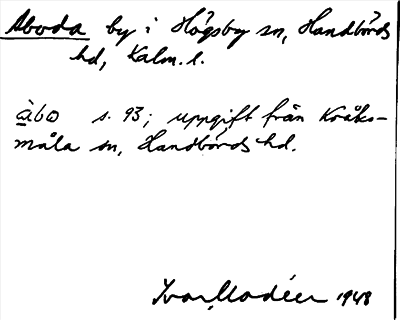 Aboda by i Högsby sn, Handbörds
hd, Kalm. l.
àbo s. 93; uppgift från Kråks-
måla sn, Handbörds hd.
Ivar Modéer 1948